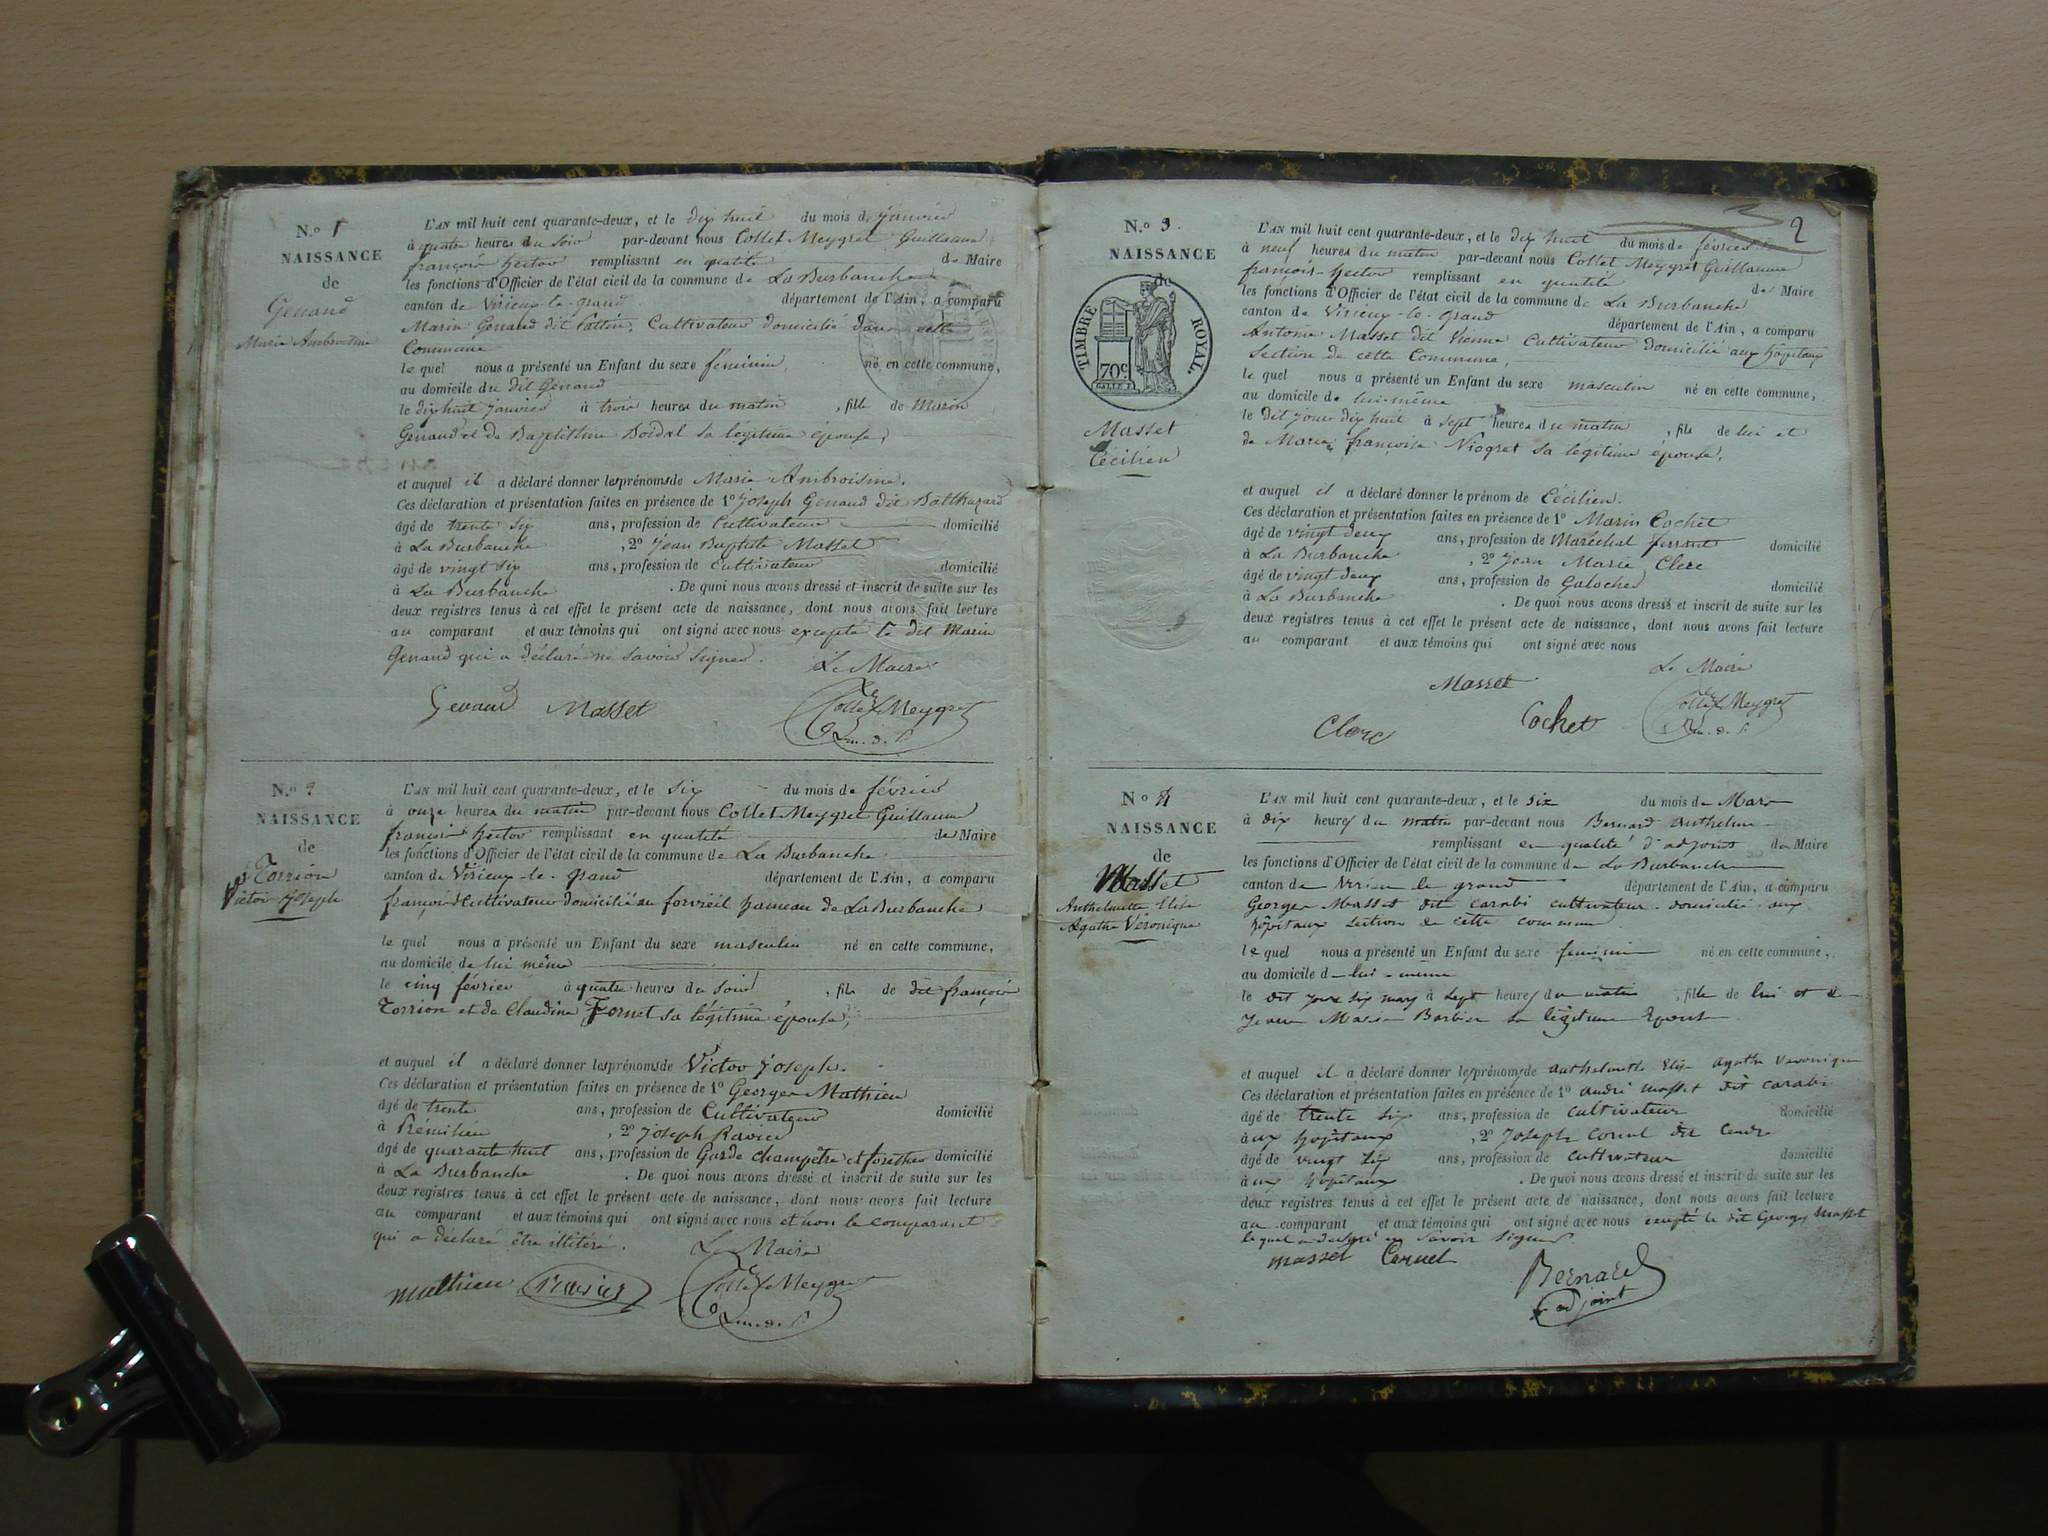 N.o 1
NAISSANCE
de
Genaud
Marie Ambroisine
L'AN mil huit cent quarante-deux, et le dix huit du mois de janvier
à quatre heures du soir par-devant nous Collet Meygret Guillaume
françois hector remplissant en qualité de Maire
les fonctions d'Officier de l'état civil de la commune de La Burbanche
canton de Virieux-le-grand département de l'Ain, a comparu
Marin Genaud dit Cultivateur domicilié dans cette
Commune
le quel nous a présenté un Enfant du sexe féminin, né en cette commune,
au domicile du dit Genaud
le dix huit janvier à trois heures du matin, fille de Marin
Genaud et de Baptistine sa légitime épouse,
et auquel il a déclaré donner les prénoms de Marie Ambroisine.
Ces déclaration et présentation faites en présence de 1o Joseph Genaud dit Balthazard
âgé de trente six ans, profession de Cultivateur domicilié
à La Burbanche, 2o Jean Baptiste Masset
âgé de vingt six ans, profession de Cultivateur domicilié
à La Burbanche. De quoi nous avons dressé et inscrit de suite sur les
deux registres tenus à cet effet le présent acte de naissance, dont nous avons fait lecture
au comparant et aux témoins qui ont signé avec nous excepté le dit Marin
Genaud qui a déclaré ne savoir signer.
Le Maire
Genaud Masset Collet Meygret
N.o 2
NAISSANCE
de
Torrion
Victor Joseph
L'AN mil huit cent quarante-deux, et le six du mois de février
à onze heures du matin par-devant nous Collet Meygret Guillaume
françois hector remplissant en qualité de Maire
les fonctions d'Officier de l'état civil de la commune de La Burbanche
canton de Virieux-le-grand département de l'Ain, a comparu
françois Cultivateur domicilié au hameau de La Burbanche
le quel nous a présenté un Enfant du sexe masculin né en cette commune,
au domicile de lui même
le cinq février à quatre heures du soir, fils de dit françois
Torrion et de Claudine Fornet sa légitime épouse,
et auquel il a déclaré donner les prénoms de Victor Joseph.
Ces déclaration et présentation faites en présence de 1o Georges Mathieu
âgé de trente ans, profession de Cultivateur domicilié
à Prémilieu, 2o Joseph Ravier
âgé de quarante huit ans, profession de Garde champêtre et forestier domicilié
à La Burbanche. De quoi nous avons dressé et inscrit de suite sur les
deux registres tenus à cet effet le présent acte de naissance, dont nous avons fait lecture
au comparant et aux témoins qui ont signé avec nous et non le comparant
qui a déclaré être illitéré.
Le Maire
Mathieu Ravier Collet Meygret
2
N.o 3.
NAISSANCE
de
TIMBRE ROYAL.
70c
Masset
Cécilien
L'AN mil huit cent quarante-deux, et le dix huit du mois de février
à neuf heures du matin par-devant nous Collet Meygret Guillaume
françois-hector remplissant en qualité de Maire
les fonctions d'Officier de l'état civil de la commune de La Burbanche
canton de Virieux-le-grand département de l'Ain, a comparu
Antoine Masset dit Vienne Cultivateur domicilié aux hôpitaux
Section de cette Commune,
le quel nous a présenté un Enfant du sexe masculin né en cette commune,
au domicile de lui-même
le dit jour dix huit à sept heures du matin, fils de lui et
de Marie françoise Niogret sa légitime épouse.
et auquel il a déclaré donner le prénom de Cécilien.
Ces déclaration et présentation faites en présence de 1o Marin Cochet
âgé de vingt deux ans, profession de Maréchal ferrant domicilié
à La Burbanche, 2o Jean Marie Clerc
âgé de vingt deux ans, profession de Galocher domicilié
à La Burbanche. De quoi nous avons dressé et inscrit de suite sur les
deux registres tenus à cet effet le présent acte de naissance, dont nous avons fait lecture
au comparant et aux témoins qui ont signé avec nous
Le Maire
Masset
Clerc Cochet Collet Meygret
No 4
NAISSANCE
de
Masset
Anthelmette Elise
Agathe Véronique
L'AN mil huit cent quarante-deux, et le six du mois de Mars
à dix heures du matin par-devant nous Bernard Anthelme
remplissant en qualité d'adjoint de Maire
les fonctions d'Officier de l'état civil de la commune de La Burbanche
canton de Virieu le grand département de l'Ain, a comparu
Georges Masset dit carabi cultivateur domicilié aux
hôpitaux section de cette commune.
le quel nous a présenté un Enfant du sexe feminin né en cette commune,
au domicile de lui-même
le dit jour six mars à sept heures du matin, fille de lui et de
Jeanne Marie Barbier sa légitime Epouse
et auquel il a déclaré donner les prénoms de anthelmette Elise agathe Veronique
Ces déclaration et présentation faites en présence de 1o andré masset dit carabi
âgé de trente six ans, profession de cultivateur domicilié
aux hôpitaux, 2o Joseph
âgé de vingt six ans, profession de cultivateur domicilié
aux hôpitaux. De quoi nous avons dressé et inscrit de suite sur les
deux registres tenus à cet effet le présent acte de naissance, dont nous avons fait lecture
au comparant et aux témoins qui ont signé avec nous excepté le dit Georges Masset
lequel a déclaré ne savoir signer.
masset Bernard
adjoint